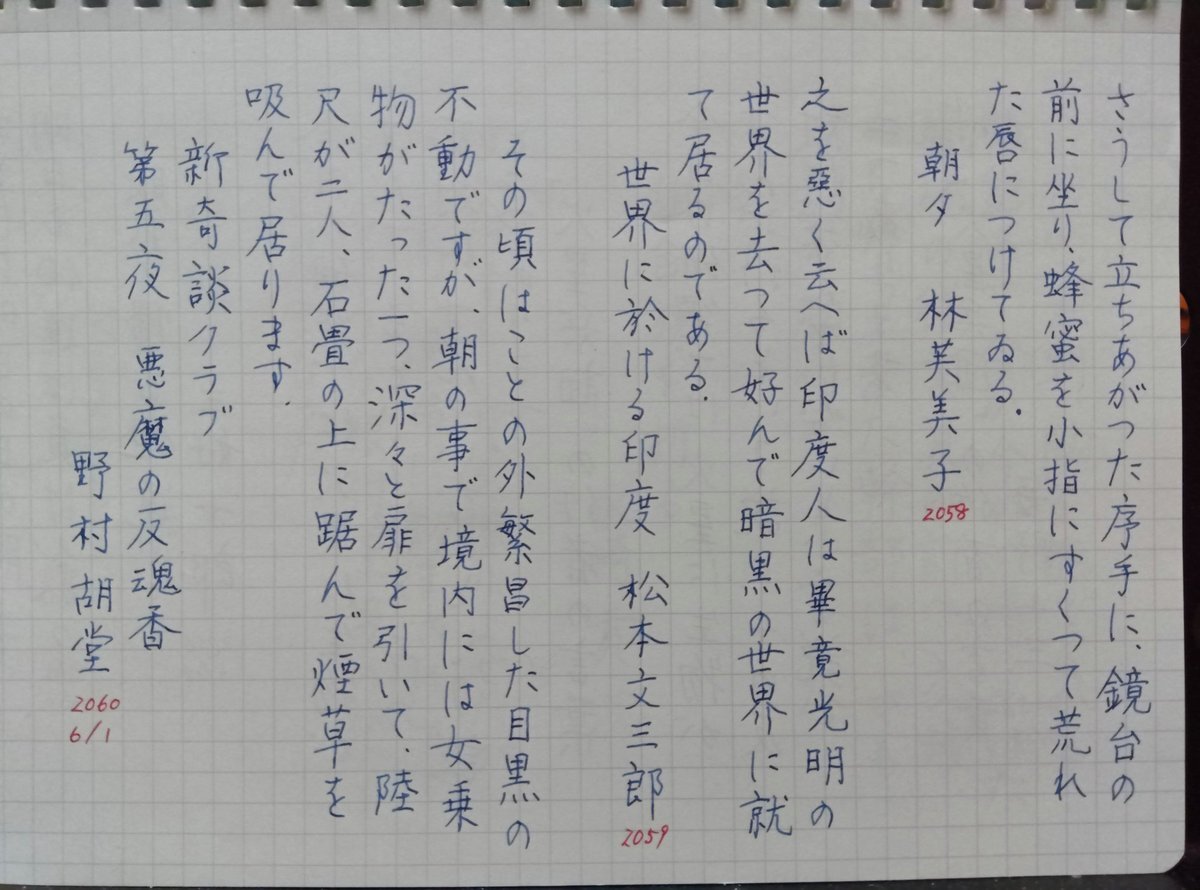 さうして立ちあがつた序手に、鏡台の
前に坐り、蜂蜜を小指にすくつて荒れ
た唇につけてゐる。
朝夕　林芙美子
2058
之を惡く云へば印度人は畢竟光明の
世界を去つて好んで暗黒の世界に就
て居るのである。
世界に於ける印度　松本文三郎
2059
その頃はことの外繁昌した目黒の
不動ですが、朝の事で境内には女乗
物がたった一つ、深々と扉を引いて、陸
尺が二人、石畳の上に踞んで煙草を
吸んで居ります。
新奇談クラブ
第五夜　悪魔の反魂香
野村胡堂
2060
6/1